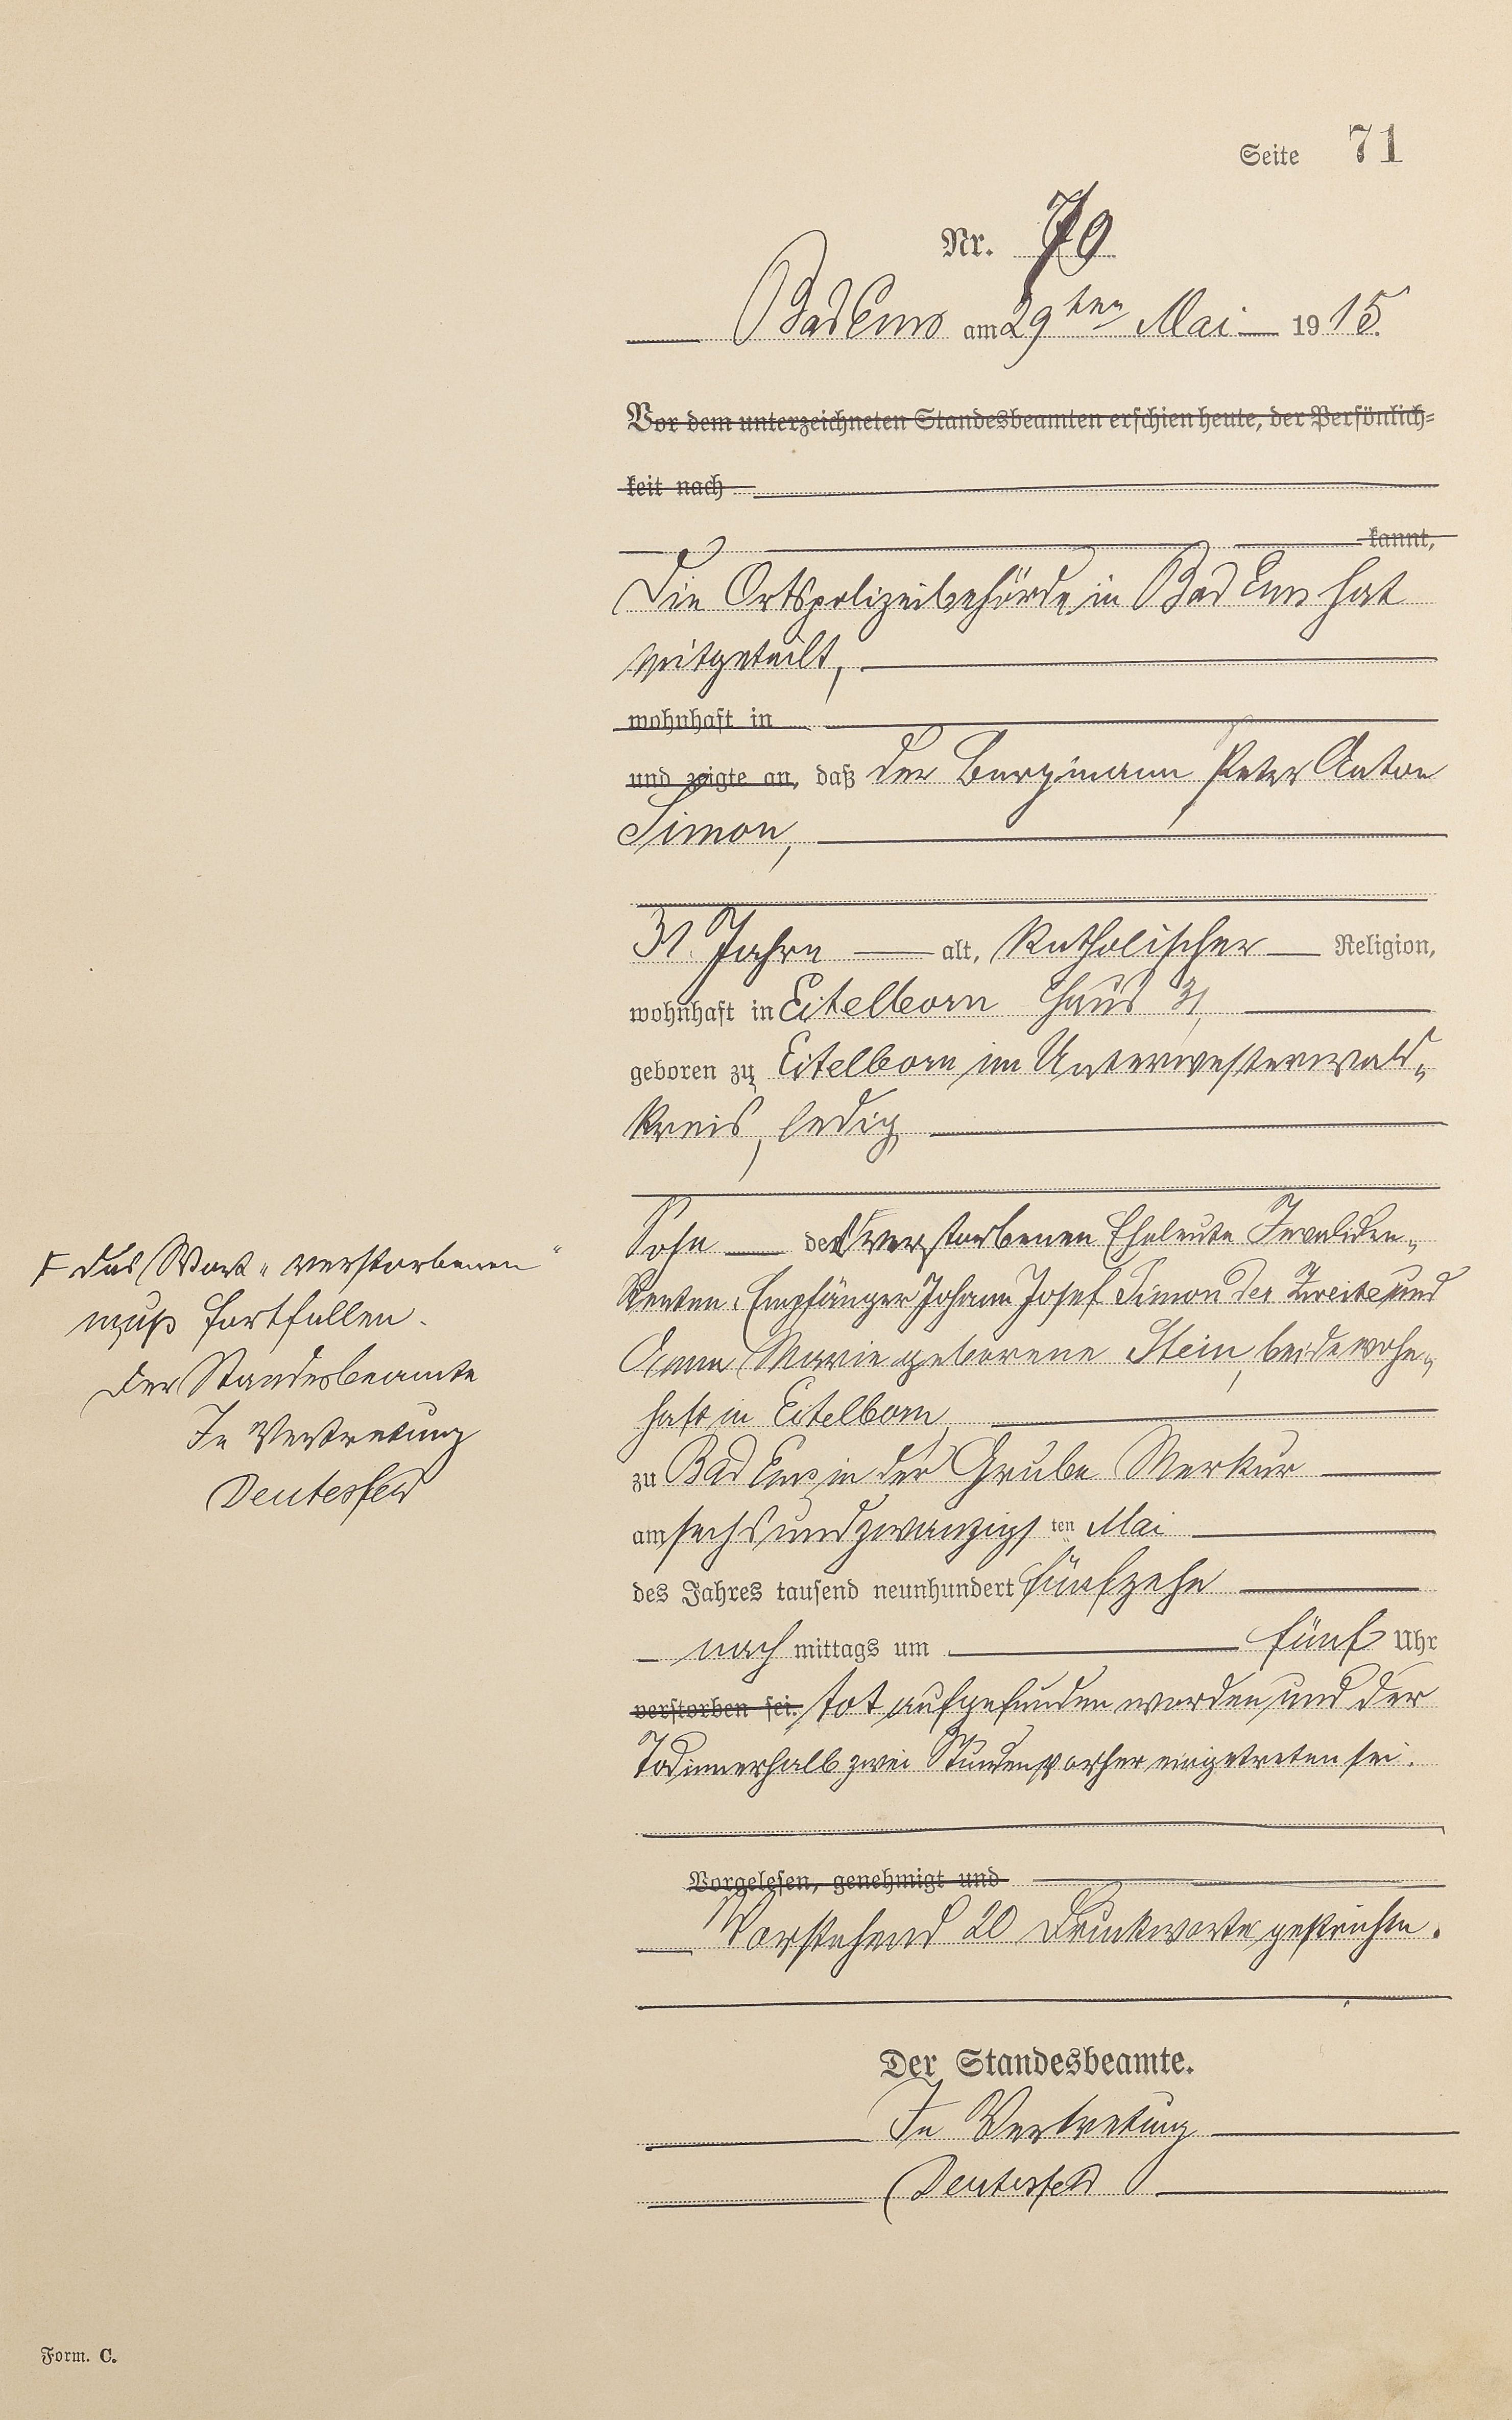 Seite 71
Nr. 70
Bad Ems am 29ten Mai 1915.
Vor dem unterzeichneten Standesbeamten erschien heute, der Persönlich-
keit nach
kannt,
Die Ortspolizeibehörde in Bad Ems hat
mitgeteilt,
wohnhaft in
und zeigte an, daß der Bergmann Peter Anton
Simon,
31 Jahre alt, katholischer Religion,
wohnhaft in Eitelborn Haus 31,
geboren zu Eitelborn im Unterwesterwald-
kreis, ledig
Sohn der verstorbenen Eheleute Invaliden-
Renten-Empfänger Johann Josef Simon der Zweite und
Anna Marie geborene Stein, beide wohn-
haft in Eitelborn,
zu Bad Ems in der Grube Merkur
am sechsundzwanzigsten Mai
des Jahres tausend neunhundert fünfzehn
nachmittags um fünf Uhr
verstorben sei. tot aufgefunden worden und der
Tod innerhalb zwei Stunden vorher eingetreten sei.
Vorgelesen, genehmigt und
Vorstehend 20 Druckworte gestrichen.
Der Standesbeamte.
In Vertretung
Deutesfeld
F das Wort "verstorbenen"
muß fortfallen.
Der Standesbeamte
In Vertretung
Deutesfeld
Form. C.